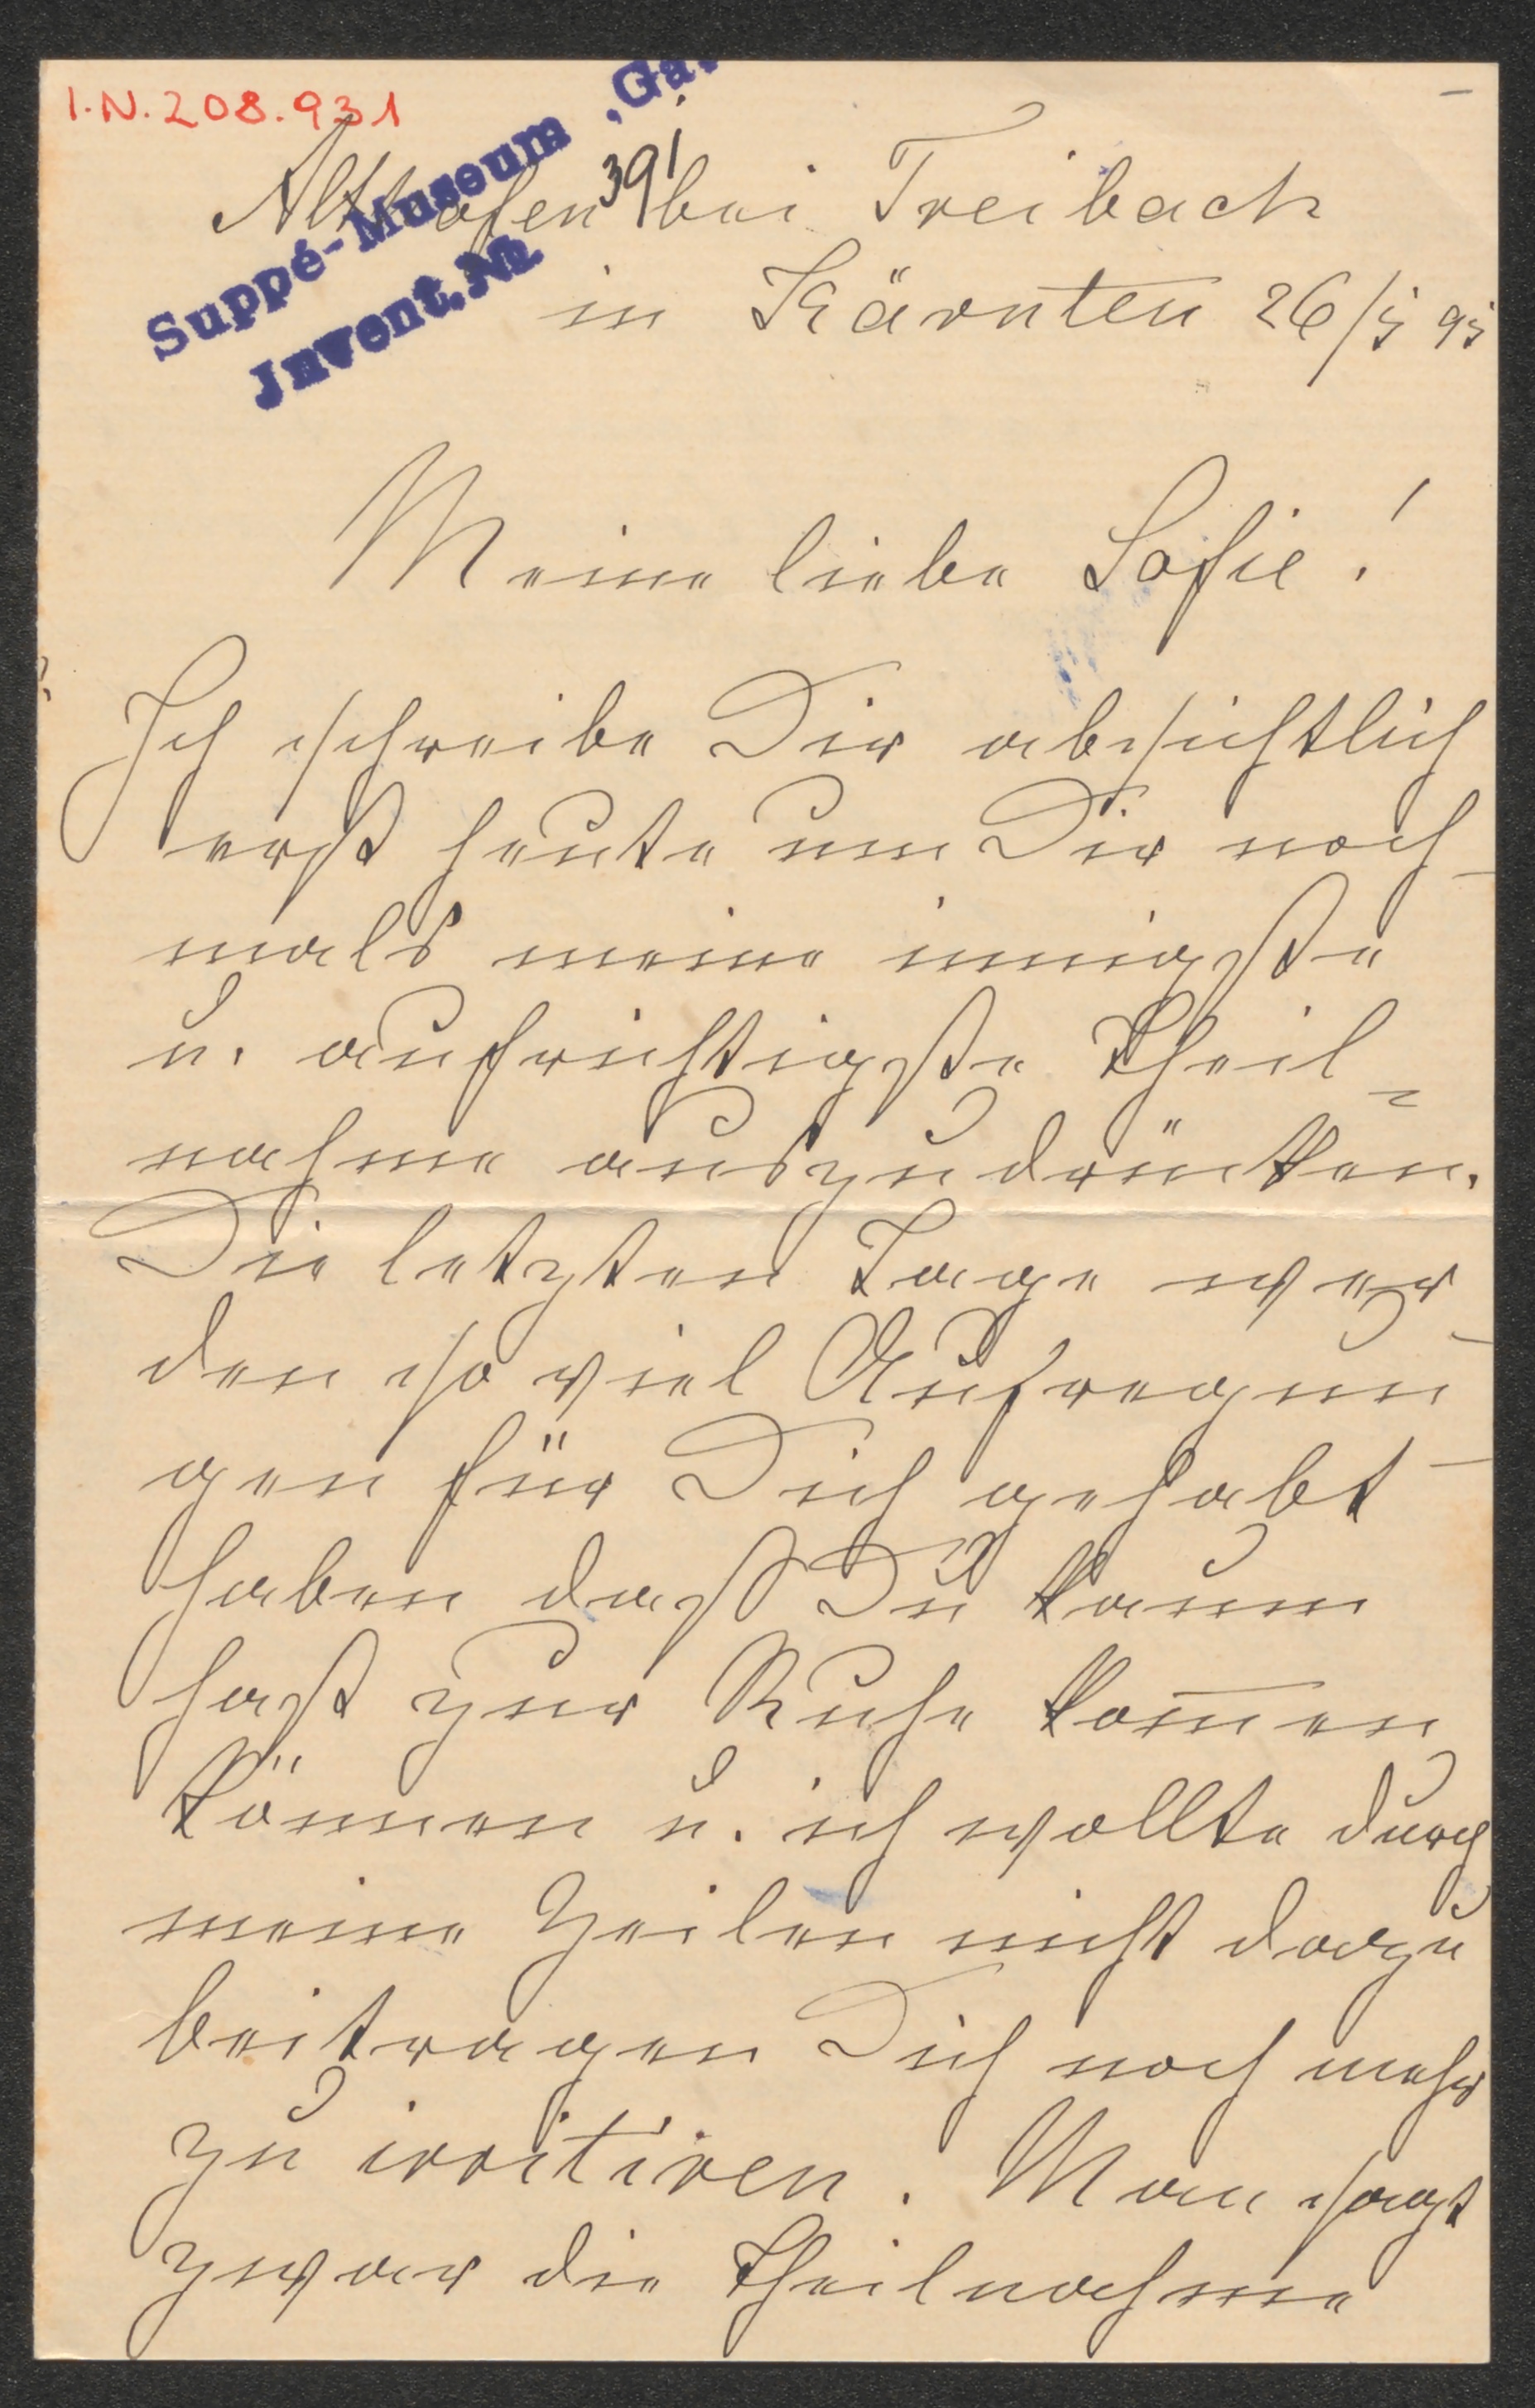 I.N. 208.931
Suppé-Museum ‚Ga
Invent.Nr.
391
Althofen bei Treibach
in Kärnten 26/5 95
Meine liebe Sofie!
Ich schreibe Dir absichtlich
erst heute um Dir noch-
mals meine innigste
u. aufrichtigste Theil-
nahme auszudrücken.
Die letzten Tage wer
den so viel Aufregun-
gen für Dich gehabt
haben daß Du kaum
hast zur Ruhe kom̄en
können u. ich wollte durch
meine Zeilen nicht dazu
beitragen Dich noch mehr
zu irritiren. Man sagt
zwar die Theilnahme